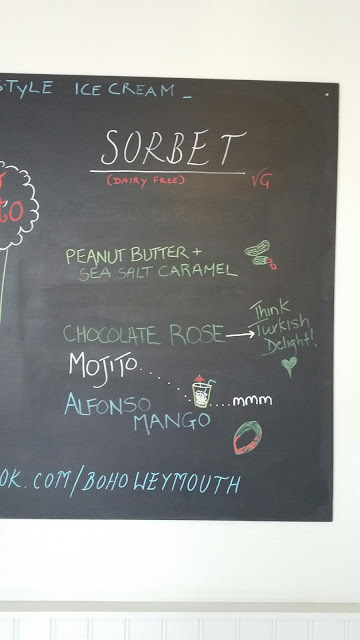 STYLE ICE CREAM _
SORBET
(DAIRY FREE) VG
PEANUT BUTTER +
SEA SALT CARAMEL
CHOCOLATE ROSE → Think
Turkish
Delight!
MOJITO..... ....mmm
ALFONSO
MANGO
OK.COM/BOHOWEYMOUTH